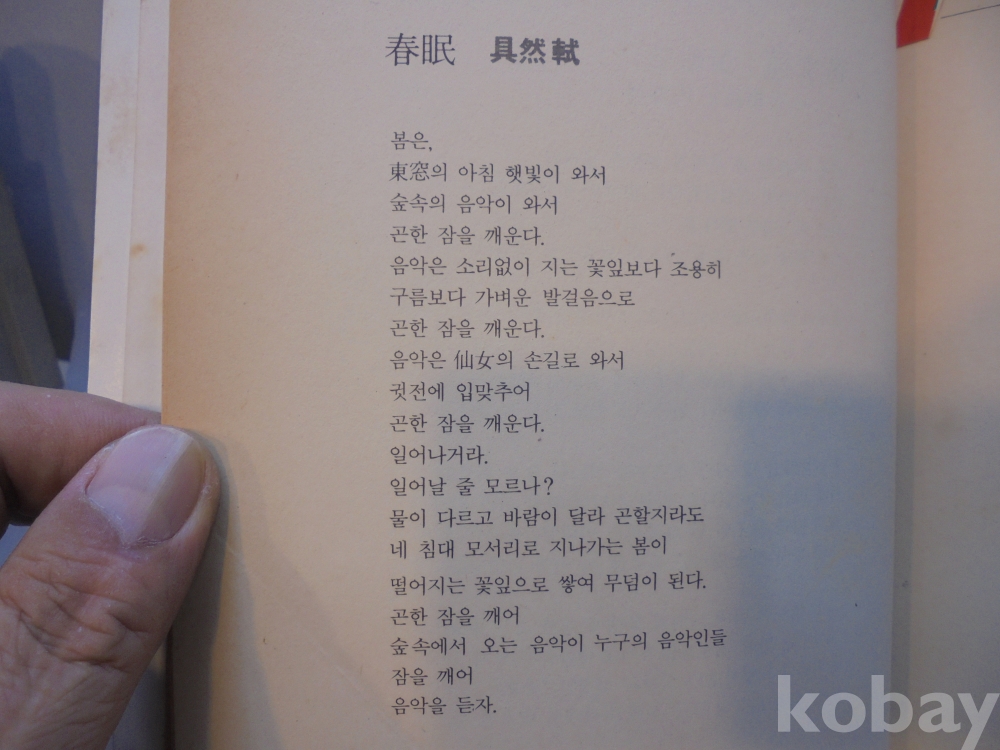 春眠 具然軾
봄은,
東窓의 아침 햇빛이 와서
숲속의 음악이 와서
곤한 잠을 깨운다.
음악은 소리없이 지는 꽃잎보다 조용히
구름보다 가벼운 발걸음으로
곤한 잠을 깨운다.
음악은 仙女의 손길로 와서
귓전에 입맞추어
곤한 잠을 깨운다.
일어나거라.
일어날 줄 모르나?
물이 다르고 바람이 달라 곤할지라도
네 침대 모서리로 지나가는 봄이
떨어지는 꽃잎으로 쌓여 무덤이 된다.
곤한 잠을 깨어
숲속에서 오는 음악이 누구의 음악인들
잠을 깨어
음악을 듣자.
kobay